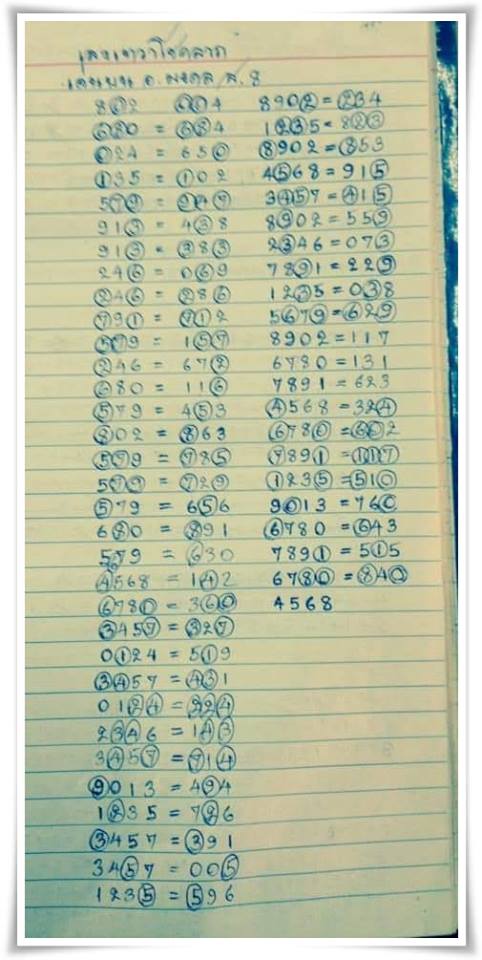 เลขเทวาโชคลาภ
เด่นบน อ. มงคล
802 604
680 = 684
024 = 650
135 = 102
579 = 247
913 = 438
913 = 383
246 = 069
246 = 286
791 = 712
579 = 157
246 = 672
680 = 116
579 = 453
802 = 863
579 = 785
579 = 729
579 = 656
680 = 891
579 = 630
4568 = 142
6780 = 360
3457 = 327
0124 = 519
3457 = 431
0124 = 224
2346 = 143
3457 = 714
9013 = 494
1235 = 726
3457 = 391
3457 = 005
1235 = 596
8902 = 234
1235 = 823
8902 = 853
4568 = 915
3457 = 415
8902 = 559
2346 = 073
7891 = 229
1235 = 038
5679 = 629
8902 = 117
6780 = 131
7891 = 623
4568 = 324
6780 = 602
7891 = 117
1235 = 510
9013 = 760
6780 = 643
7891 = 515
6780 = 840
4568